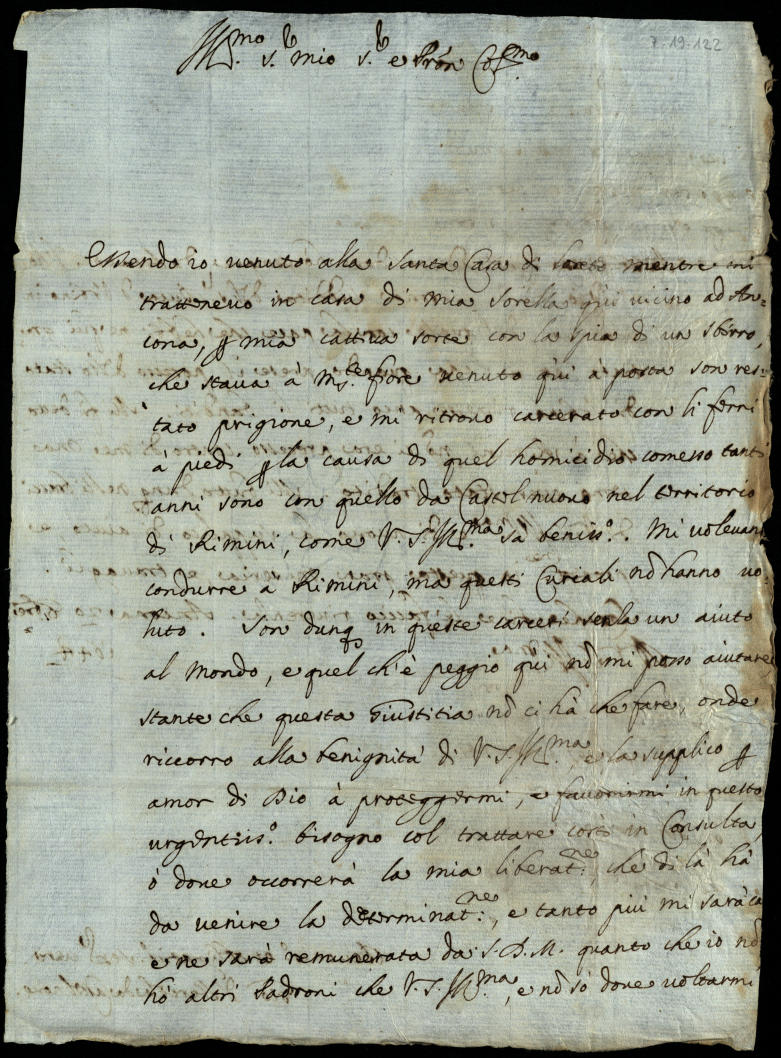 7.19.122
Ill.mo s.r mio s.r e Pron Col.mo
Essendo io venuto alla Santa Casa di Loreto mentre mi
trattenevo in casa di mia sorella qui vicino ad An=
cona, p mia cattiva sorte con la spia di un sbirro,
che stava à M.te fiore venuto qui à posta son res=
tato prigione, e mi ritrovo carcerato con li ferri
à piedi p la causa di quel homicidio comesso tanti
anni sono con quello da Castelnuovo nel territorio
di Rimini, come V.S. Ill.ma sà beniss.o. Mi volevan
condurre a Rimini, ma questi Curiali nõ hanno vo
luto. Son dunq in queste carceri senza un aiuto
al Mondo, e quel ch'è peggio qui nõ mi posso aiutare
stante che questa Giustitia nõ ci hà che fare, onde
riccorro alla benignità di V.S. Ill.ma, e la supplico p
amor di Dio à proteggermi, e favorirmi in questo
urgentiss.o bisogno col trattare costì in Consulta,
ò dove occorrerà la mia liberat.ne, che di là hà
da venire la determinat.ne, e tanto più mi sarà ca
e ne sarà remunerata da S.D.M. quanto che io nõ
hò altri Padroni che V.S. Ill.ma, e nõ sò dove voltarmi